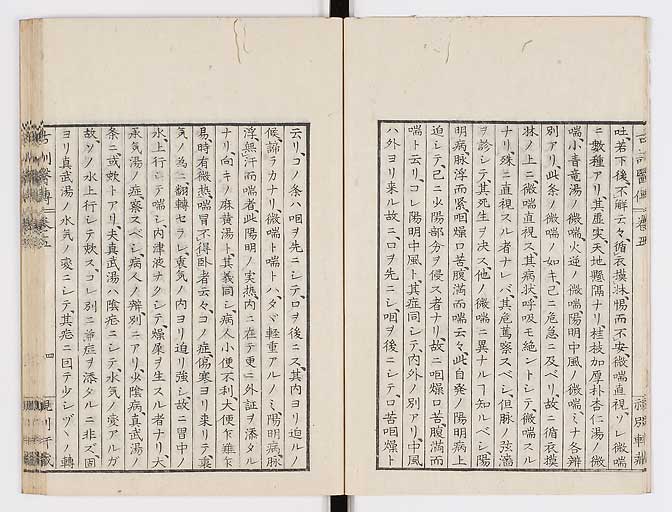 吐、若下後、不解云々、循衣摸牀、惕而不安、微喘直視、ソレ微喘
ニ數種アリ其虛実、天地懸隔ナリ、桂枝加厚朴杏仁湯ノ微
喘、小青竜湯ノ微喘、火逆ノ微喘、陽明中風ノ微喘、ミナ各辨
別アリ、此条ノ微喘ノ如キ、己ニ危急ニ及ベリ故ニ循衣摸
牀ノ上ニ微喘直視ス、其病状、呼吸モ絶レントシテ、微喘スル
ナリ、殊ニ直視スル者ナレバ、其危篤察スベシ、但脉ノ弦濇
ヲ診シテ、其死生ヲ决ス、他ノ微喘ニ異ナルヿ知ルベシ、陽
明病、脉浮而緊、咽燥口苦、腹満而喘云々、此自発ノ陽明病上
迫シテ、己ニ少陽部分ヲ侵ス者ナリ、故ニ咽燥口苦、腹満而
喘ト云リ、コレ陽明中風ト、其症同シテ、内外ノ別アリ、中風
ハ外ヨリ来ル故ニ、口ヲ先ニシ咽ヲ後ニシテ、口苦咽燥ト
云リ、コノ条ハ咽ヲ先ニシテ、口ヲ後ニス、其内ヨリ迫ルノ
候、諦ラカナリ、微喘ト喘ト、ハタヾ軽重アルノミ、陽明病、脉
浮、無汗而喘者、此陽明ノ実熱、内ニ在テ更ニ外証ヲ添タル
ナリ、向キノ麻黄湯ト、其義同シ、病人小便不利、大便乍難乍
易、時有微熱、喘冒不得卧者云々、コノ症、傷寒ヨリ来リテ裏
気ノ為ニ翻轉セラレ、裏気ノ内ヨリ迫リ強シ、故ニ胃中ノ
水上行シテ喘シ、内津液ナクシテ、燥屎ヲ生スル者ナリ、大
承気湯ノ症、察スベシ、病人ノ辨、別ニアリ、少陰病、真武湯ノ
条ニ、或欬トアリ、夫真武湯ハ陰症ニシテ、水気ノ変アルガ
故、ソノ水上行シテ欬ス、コレ別ニ兼症ヲ添タルニ非ズ、固
ヨリ真武湯ノ水気ノ変ニシテ、其症ニ因テ少シヅヽノ轉
四